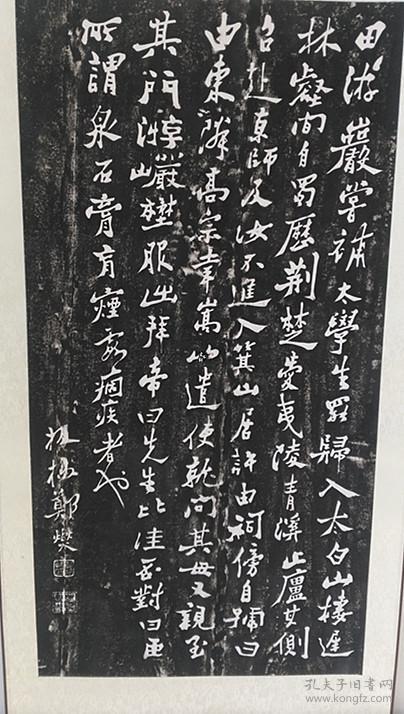 田游巖嘗補太學生罷歸入太白山棲遲
林壑間自蜀歷荊楚愛夷陵青溪止廬其側
召赴京師及汝不進入箕山居許由祠傍自號曰
由東隣高宗幸嵩山遣使就問其母又親至
其門游巖埜服出拜帝曰先生比佳否對曰臣
所謂泉石膏肓煙霞痼疾者也
板橋鄭燮
孔夫子旧书网
www.kongfz.com